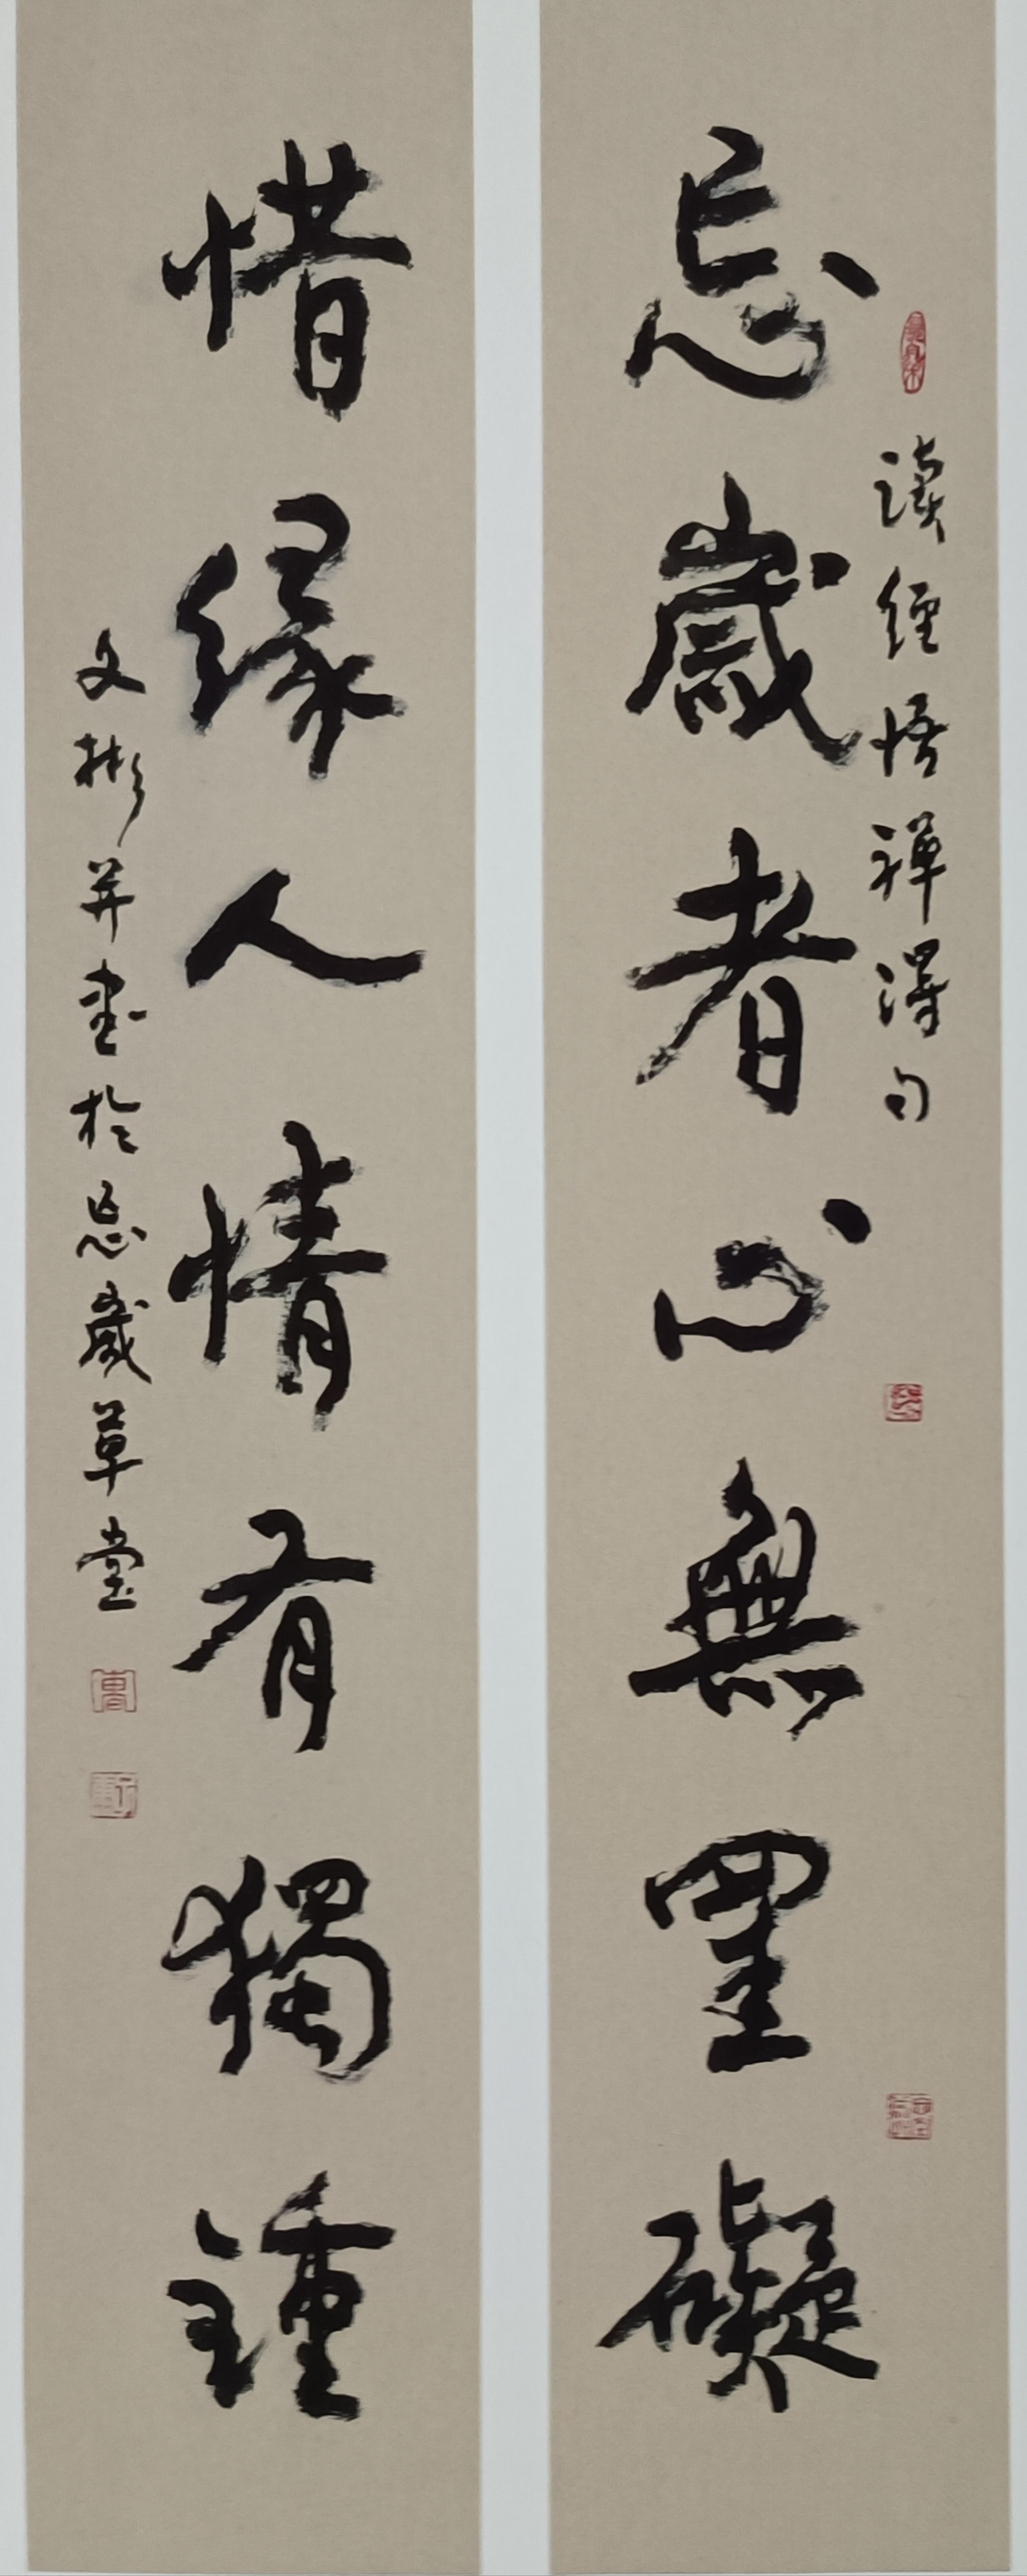 讀經悟禪得句
忘歲者心無罣礙
惜緣人情有獨鍾
文彬並書於忘歲草堂